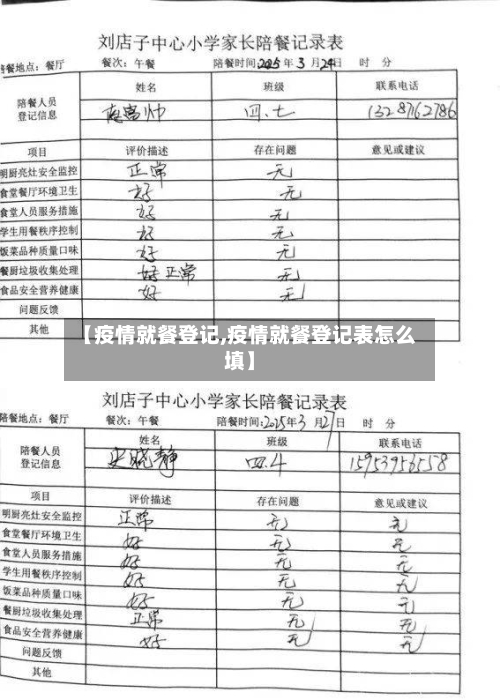 刘店子中心小学家长陪餐记录表
陪餐地点：餐厅 餐次：午餐 陪餐时间：2025年3月24日 时 分
陪餐人员登记信息 姓名 班级 联系电话
四.七 13287162786
项目 评价描述 存在问题 意见或建议
明厨亮灶安全监控 正常 无
食堂餐厅环境卫生 好 无
食堂人员服务措施 好 无
学生用餐秩序控制 好 无
饭菜品种质量口味 好 无
餐厨垃圾收集处理 好 正常 无
食品安全营养健康 好 无
问题反馈
其他
【疫情就餐登记,疫情就餐登记表怎么填】
刘店子中心小学家长陪餐记录表
陪餐地点：餐厅 餐次：午餐 陪餐时间：2025年3月27日 时 分
陪餐人员登记信息 姓名 班级 联系电话
史晓静 四.4 15953956558
项目 评价描述 存在问题 意见或建议
明厨亮灶安全监控 正常 无 无
食堂餐厅环境卫生 好 无 无
食堂人员服务措施 好 无 无
学生用餐秩序控制 好 无 无
饭菜品种质量口味 好 无 无
餐厨垃圾收集处理 正常 无 无
食品安全营养健康 好 无 无
问题反馈
其他